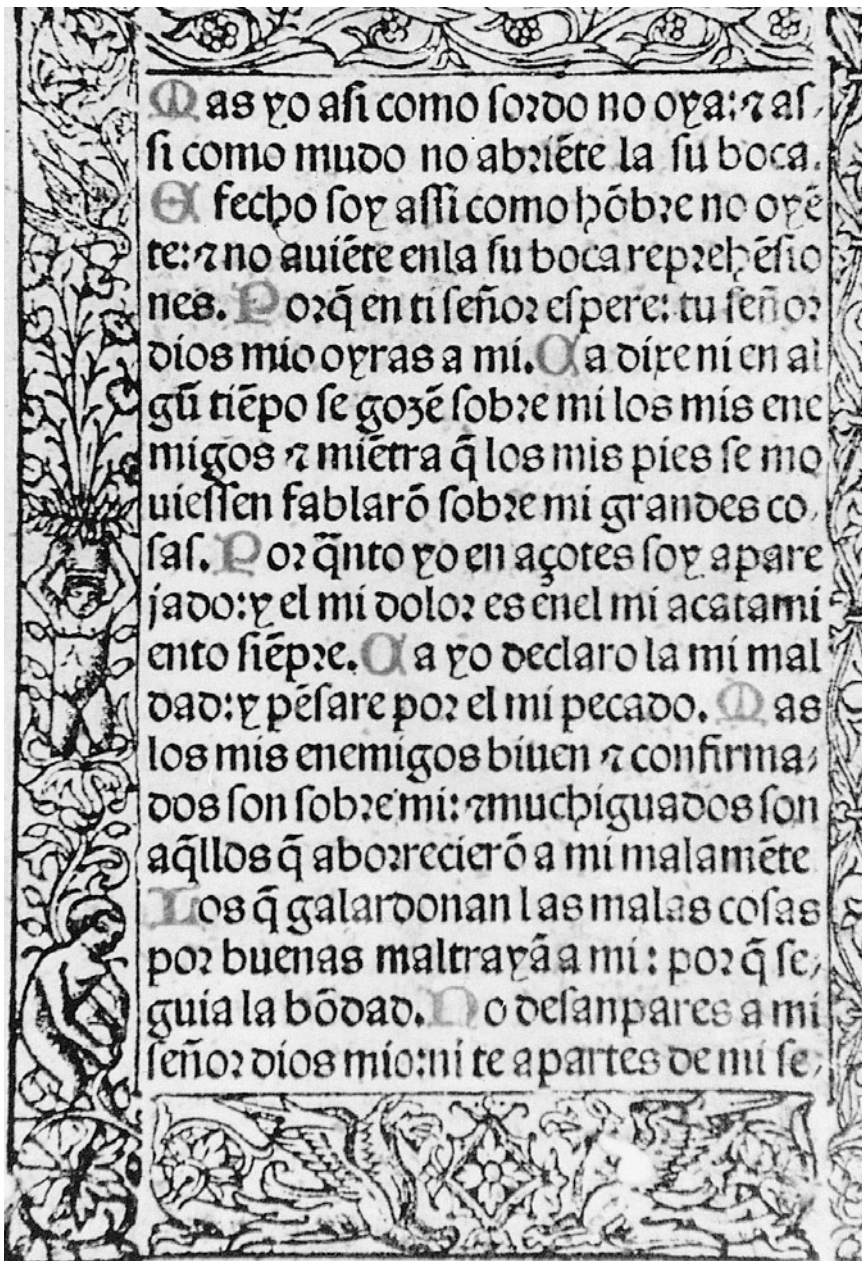 Mas yo asi como sordo no oya: ⁊ as-
si como mudo no abriẽte la su boca.
E fecho soy assi como hõbre no oyẽ
te: ⁊ no auiẽte enla su boca reprehẽsio
nes. Porq̃ en ti señor espere: tu señor
dios mio oyras a mi. Ca a dixe ni en al
gũ tiẽpo se gozẽ sobre mi los mis ene
migos ⁊ miẽtra q̃ los mis pies se mo
uiessen fablarõ sobre mi grandes co-
sas. Por q̃nto yo en açotes soy apare
jado: y el mi dolor es enel mi acatami
ento siẽpre. Ca a yo declaro la mi mal
dad: y pẽsare por el mi pecado. Mas
los mis enemigos biuen ⁊ confirma-
dos son sobre mi: ⁊ muchiguados son
aq̃llos q̃ aborrecierõ a mi malamẽte
Los q̃ galardonan las malas cosas
por buenas maltrayã a mi: por q̃ se-
guia la bõdad. No desanpares a mi
señor dios mio: ni te apartes de mi se-